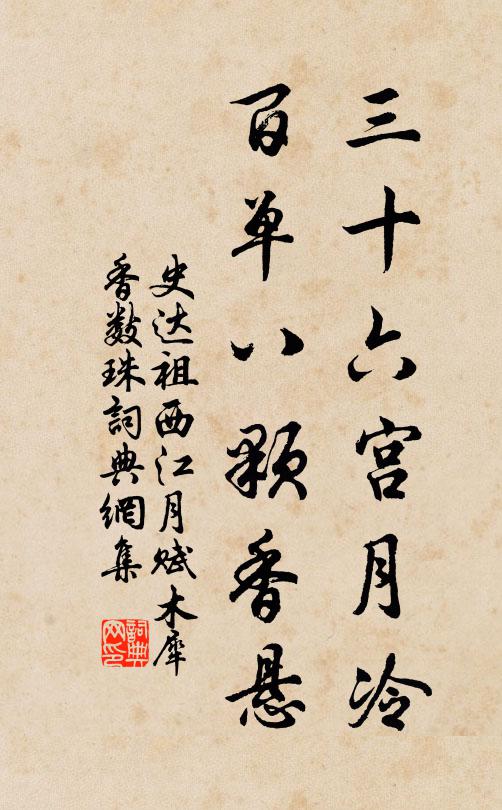 三十六宫月冷
百单八颗香悬
史达祖西江月赋木犀
香数珠詞典網集
詞典网印